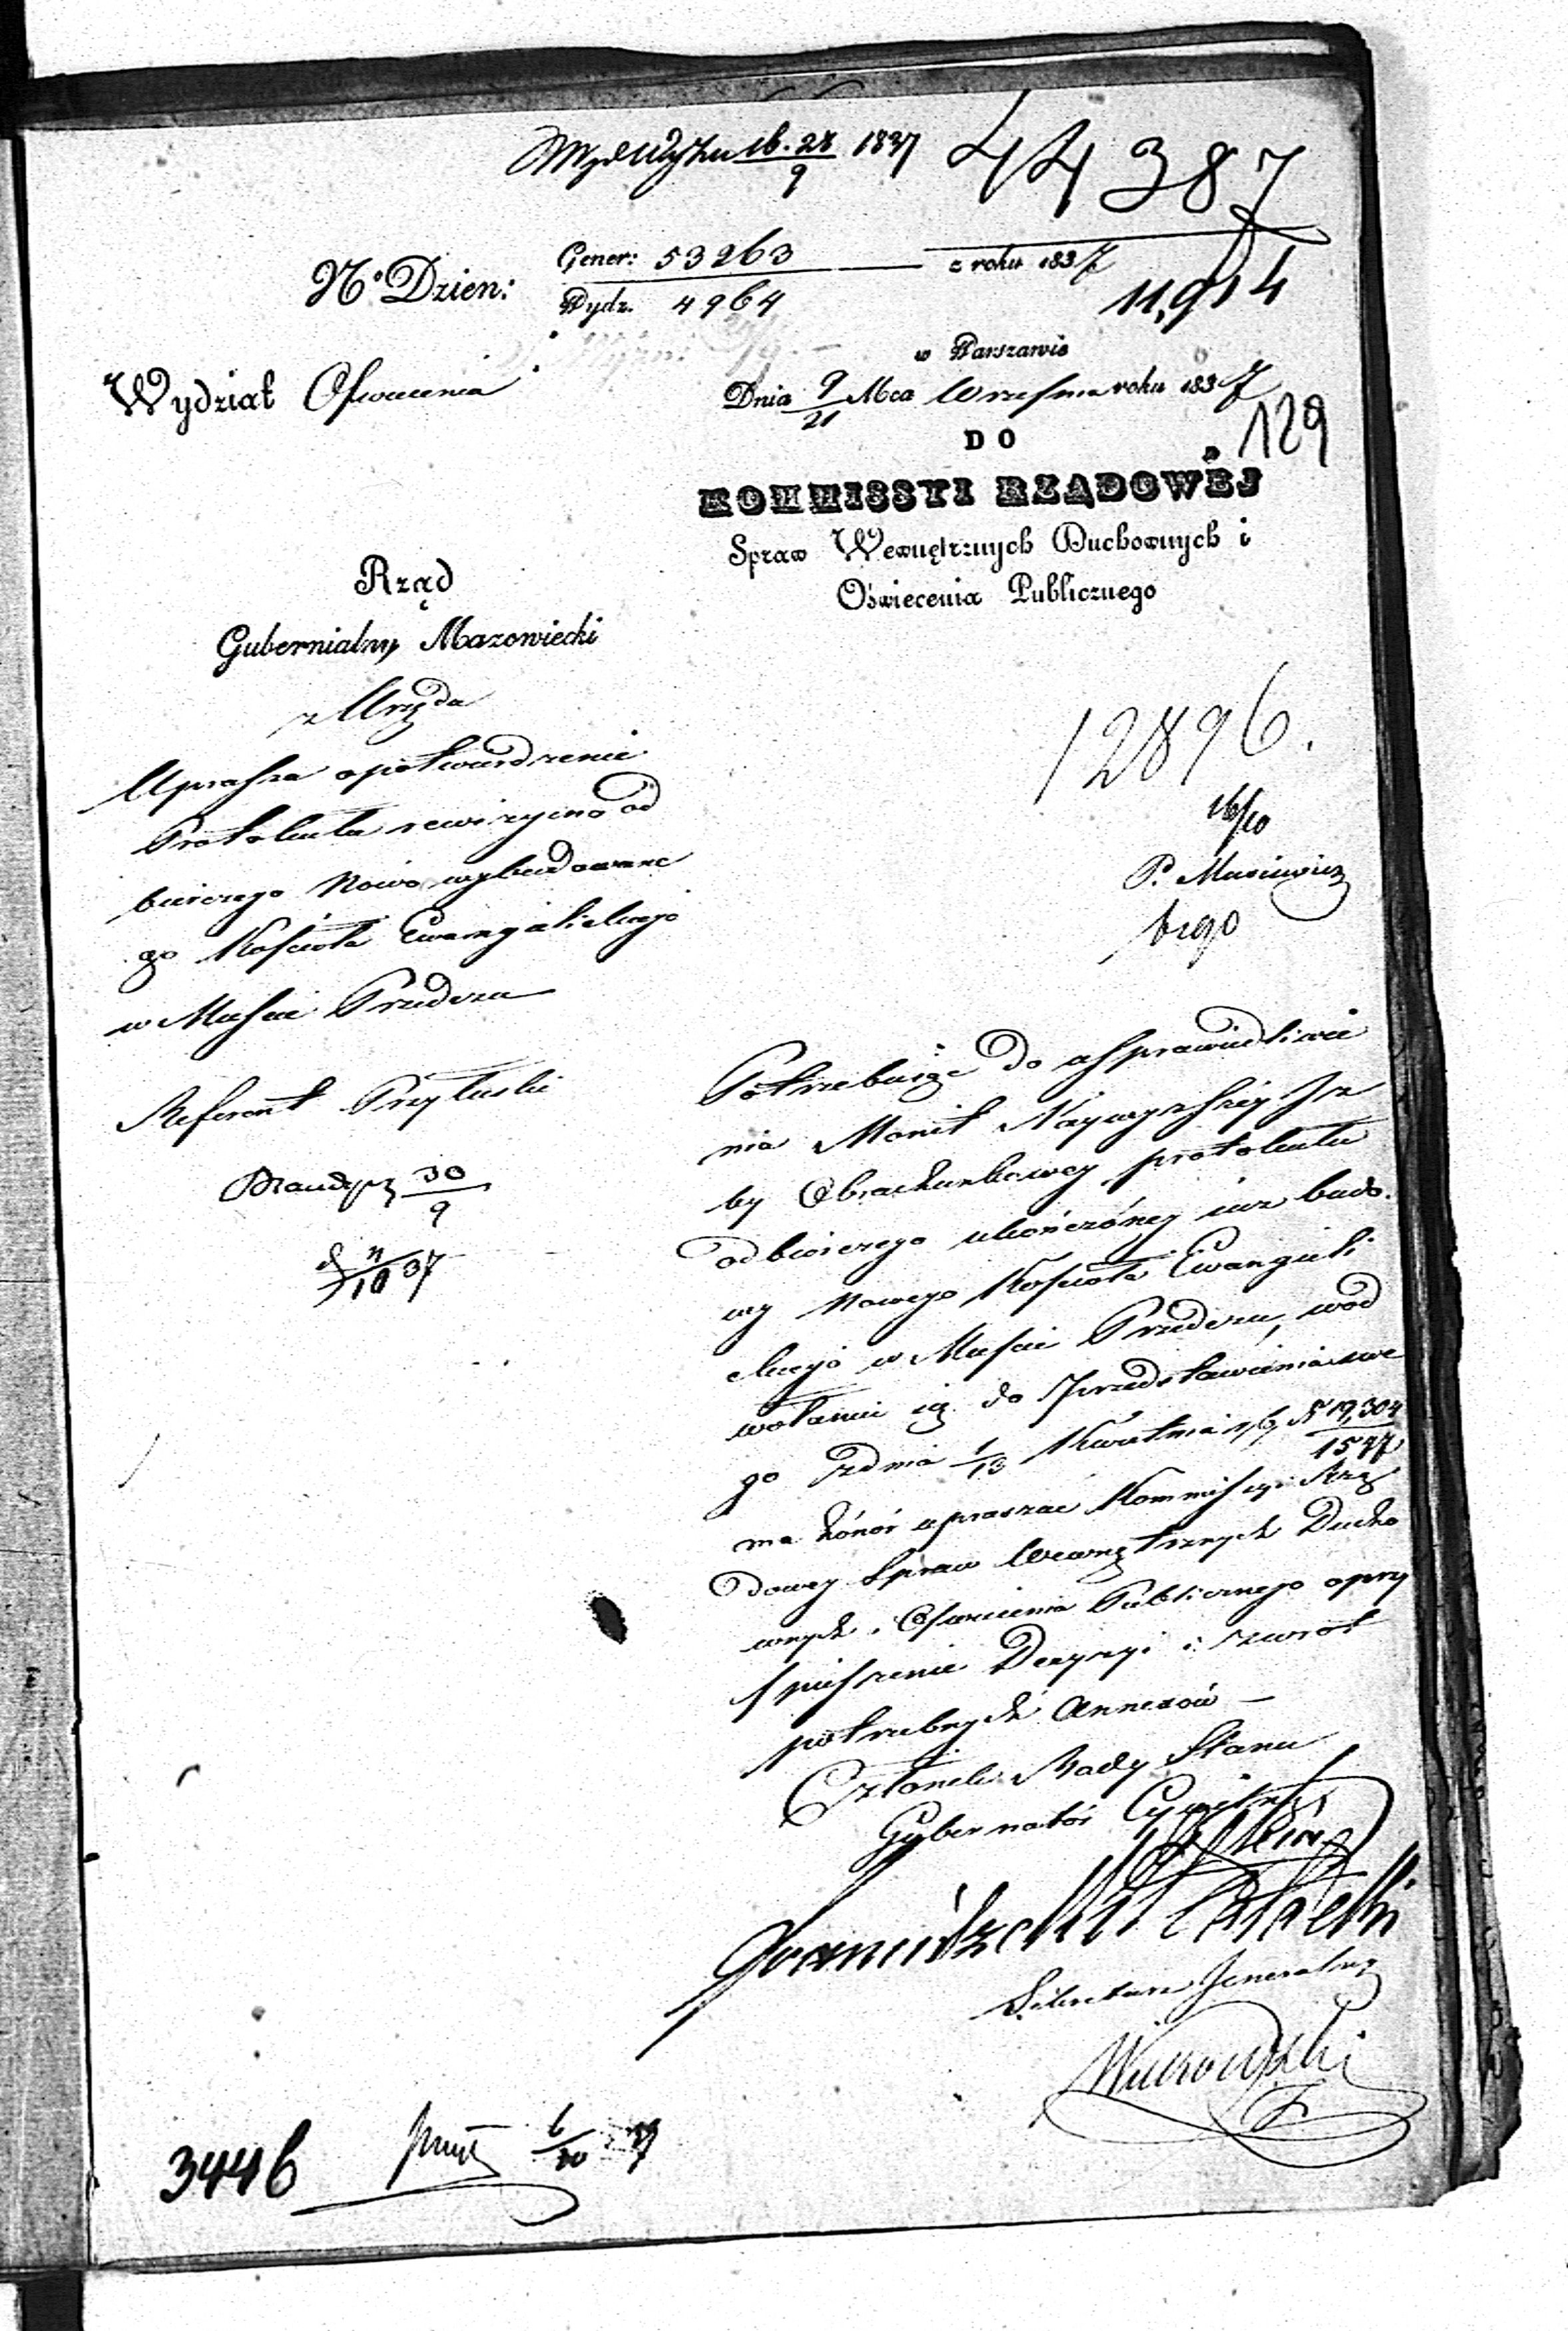 16.28/9 1837
44387
Nº Dzien: Gener: 53263 z roku 1837
Wydz. 4964
11,914
w Warszawie
Wydział Oświecenia
Dnia 9/21 Mca Września roku 1837
129
DO
KOMMISSYI RZĄDOWÉJ
Spraw Wewnętrznych Duchownych i
Oświecenia Publicznego
Rząd
Gubernialny Mazowiecki
z Urzędu
Uprasza o potwierdzenie
Protokułu rewizyino od
biorczego Nowo wybudowane
go Kościoła Ewangielickiego
w Mieście Przedczu
Referent Przyłuski
30/9
11/10 37
12896.
16/10
P.
Potrzebuiąc do usprawiedliwie
nia Monit Naywyższey Iz
by Obrachunkowey protokułu
odbiorczego ukończóney iuz budo
wy Nowego Kościoła Ewangieli
ckiego w Mieście Przedczu, wod
wołaniu się do Przedstawienia swe
go z dnia 1/13 Kwietnia r. b. N 19,304/1577
ma honór upraszać Kommissyi Rzą
dowey Spraw Wewnętrznych Ducho
wnych i Oświecenia Publicznego o przy
spieszenie Decyzyi i zwrot
potrzebnych Annexów —
Członek Rady Stanu
Gubernator Cywilny
Sekretarz Jeneralny
3446
6/10 37